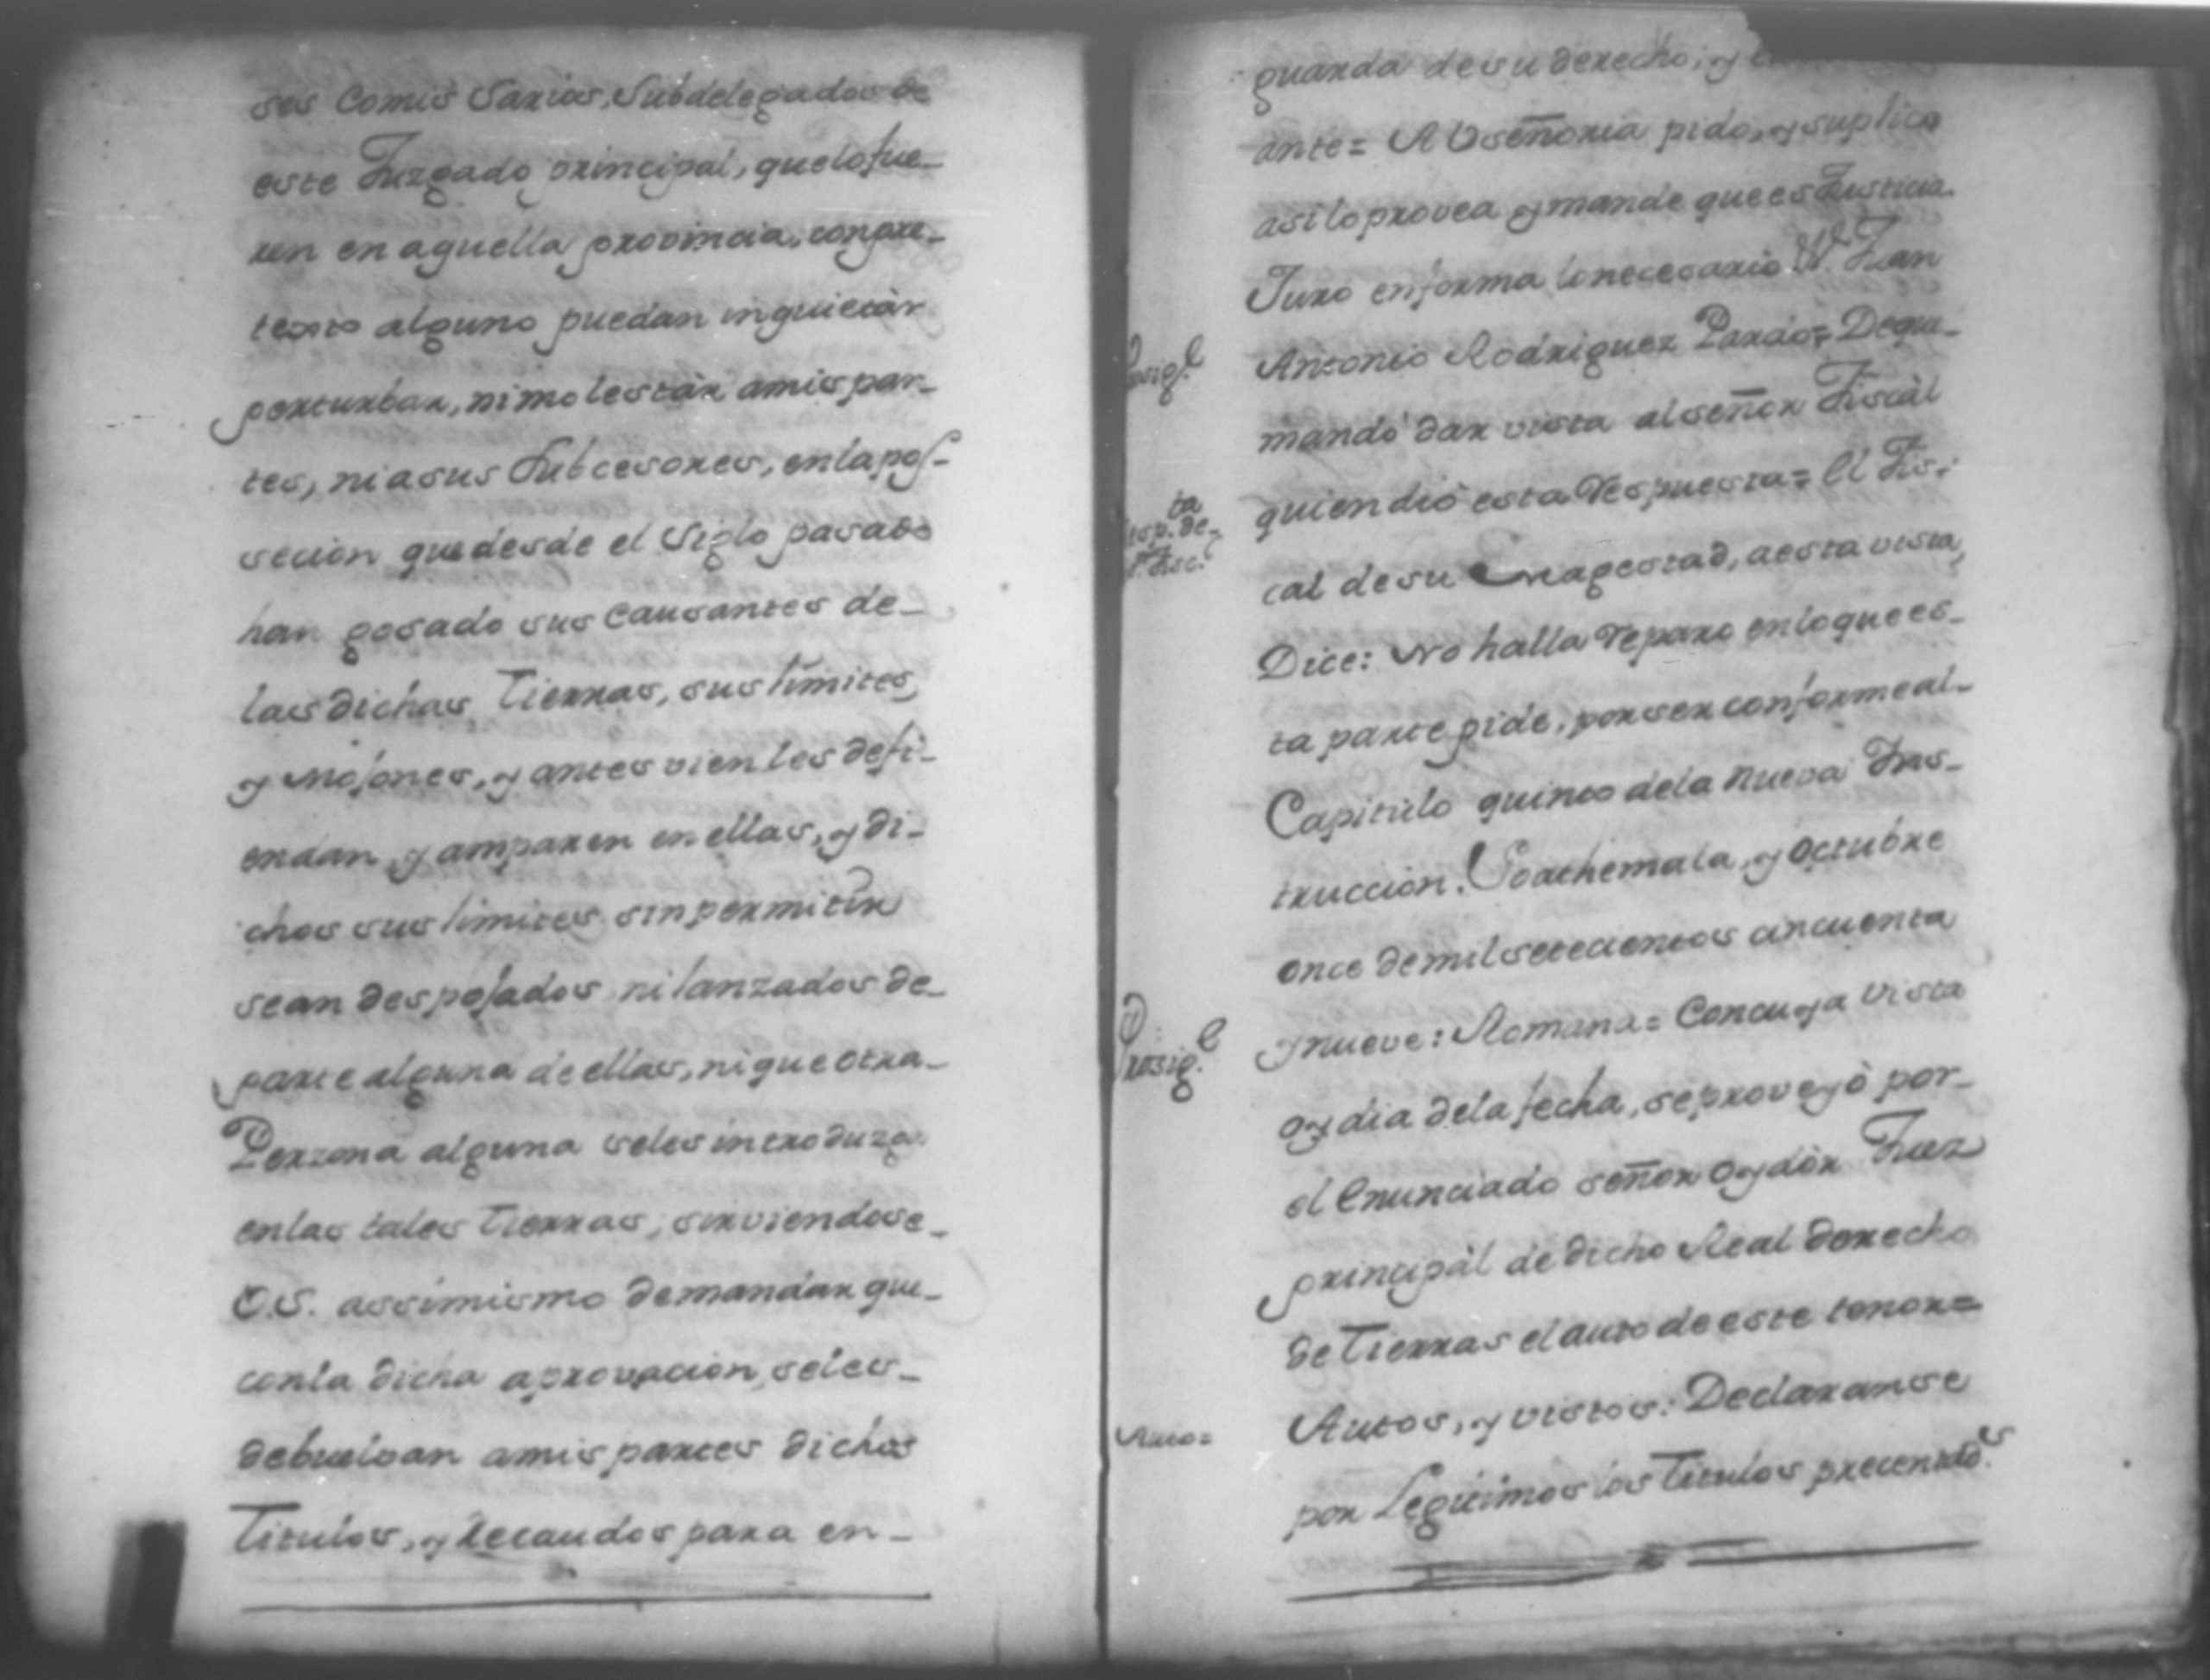 sos Comis Sarios, Subdelegados de
este Juzgado principal, que lo fue-
ren en aquella provincia, con pre-
texto alguno puedan inquietàr
perturbar, ni molestàr amis par-
tes, ni asus Subcesores, en la pos-
secion que desde el Siglo pasado
han gosado sus Causantes de-
las dichas Tierras, sus limites,
y Mojones, y antes vien les defi-
endan, y amparen en ellas, y di-
chos sus limites sin permitir
sean despojados ni lanzados de-
parte alguna de ellas, ni que otra-
Perzona alguna seles introduzga
en las tales Tierras, sirviendose-
V.S. assimismo demandar que-
con la dicha aprovacion, seles-
debuelvan amis partes dichos
Titulos, y Recaudos para en-
guarda de su derecho; y
ante= A Vseñoria pido, y suplico
asi lo provea y mande que es Justicia
Juro en forma lo necesario Juan
Antonio Rodriguez Pardo= Dequ-
mandò dar vista al señor Fiscàl
quien diò esta Respuesta= El Fis-
cal de su Magestad, aesta vista,
Dice: No halla reparo en lo que es-
ta parte pide, por ser conforme al-
Capitulo quinto dela nueva Ins-
truccion. Goathemala, y Octubre
once de mil setecientos cincuenta
y nueve: Romana= Con cuya vista
oy dia dela fecha, se proveyò por-
el Enunciado señor Oydòr Juez
principàl de dicho Real derecho
de Tierras el auto de este tenor=
Auto=
Autos, y vistos: Declaranse
por Legitimos los Titulos precentados